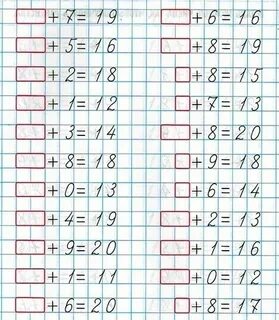 + 7 = 19
+ 5 = 16
+ 2 = 18
+ 1 = 12
+ 3 = 14
+ 8 = 18
+ 0 = 13
+ 4 = 19
+ 9 = 20
+ 1 = 11
+ 6 = 20
+ 6 = 16
+ 8 = 19
+ 8 = 15
+ 7 = 13
+ 8 = 20
+ 9 = 18
+ 6 = 14
+ 2 = 13
+ 1 = 16
+ 0 = 12
+ 8 = 17